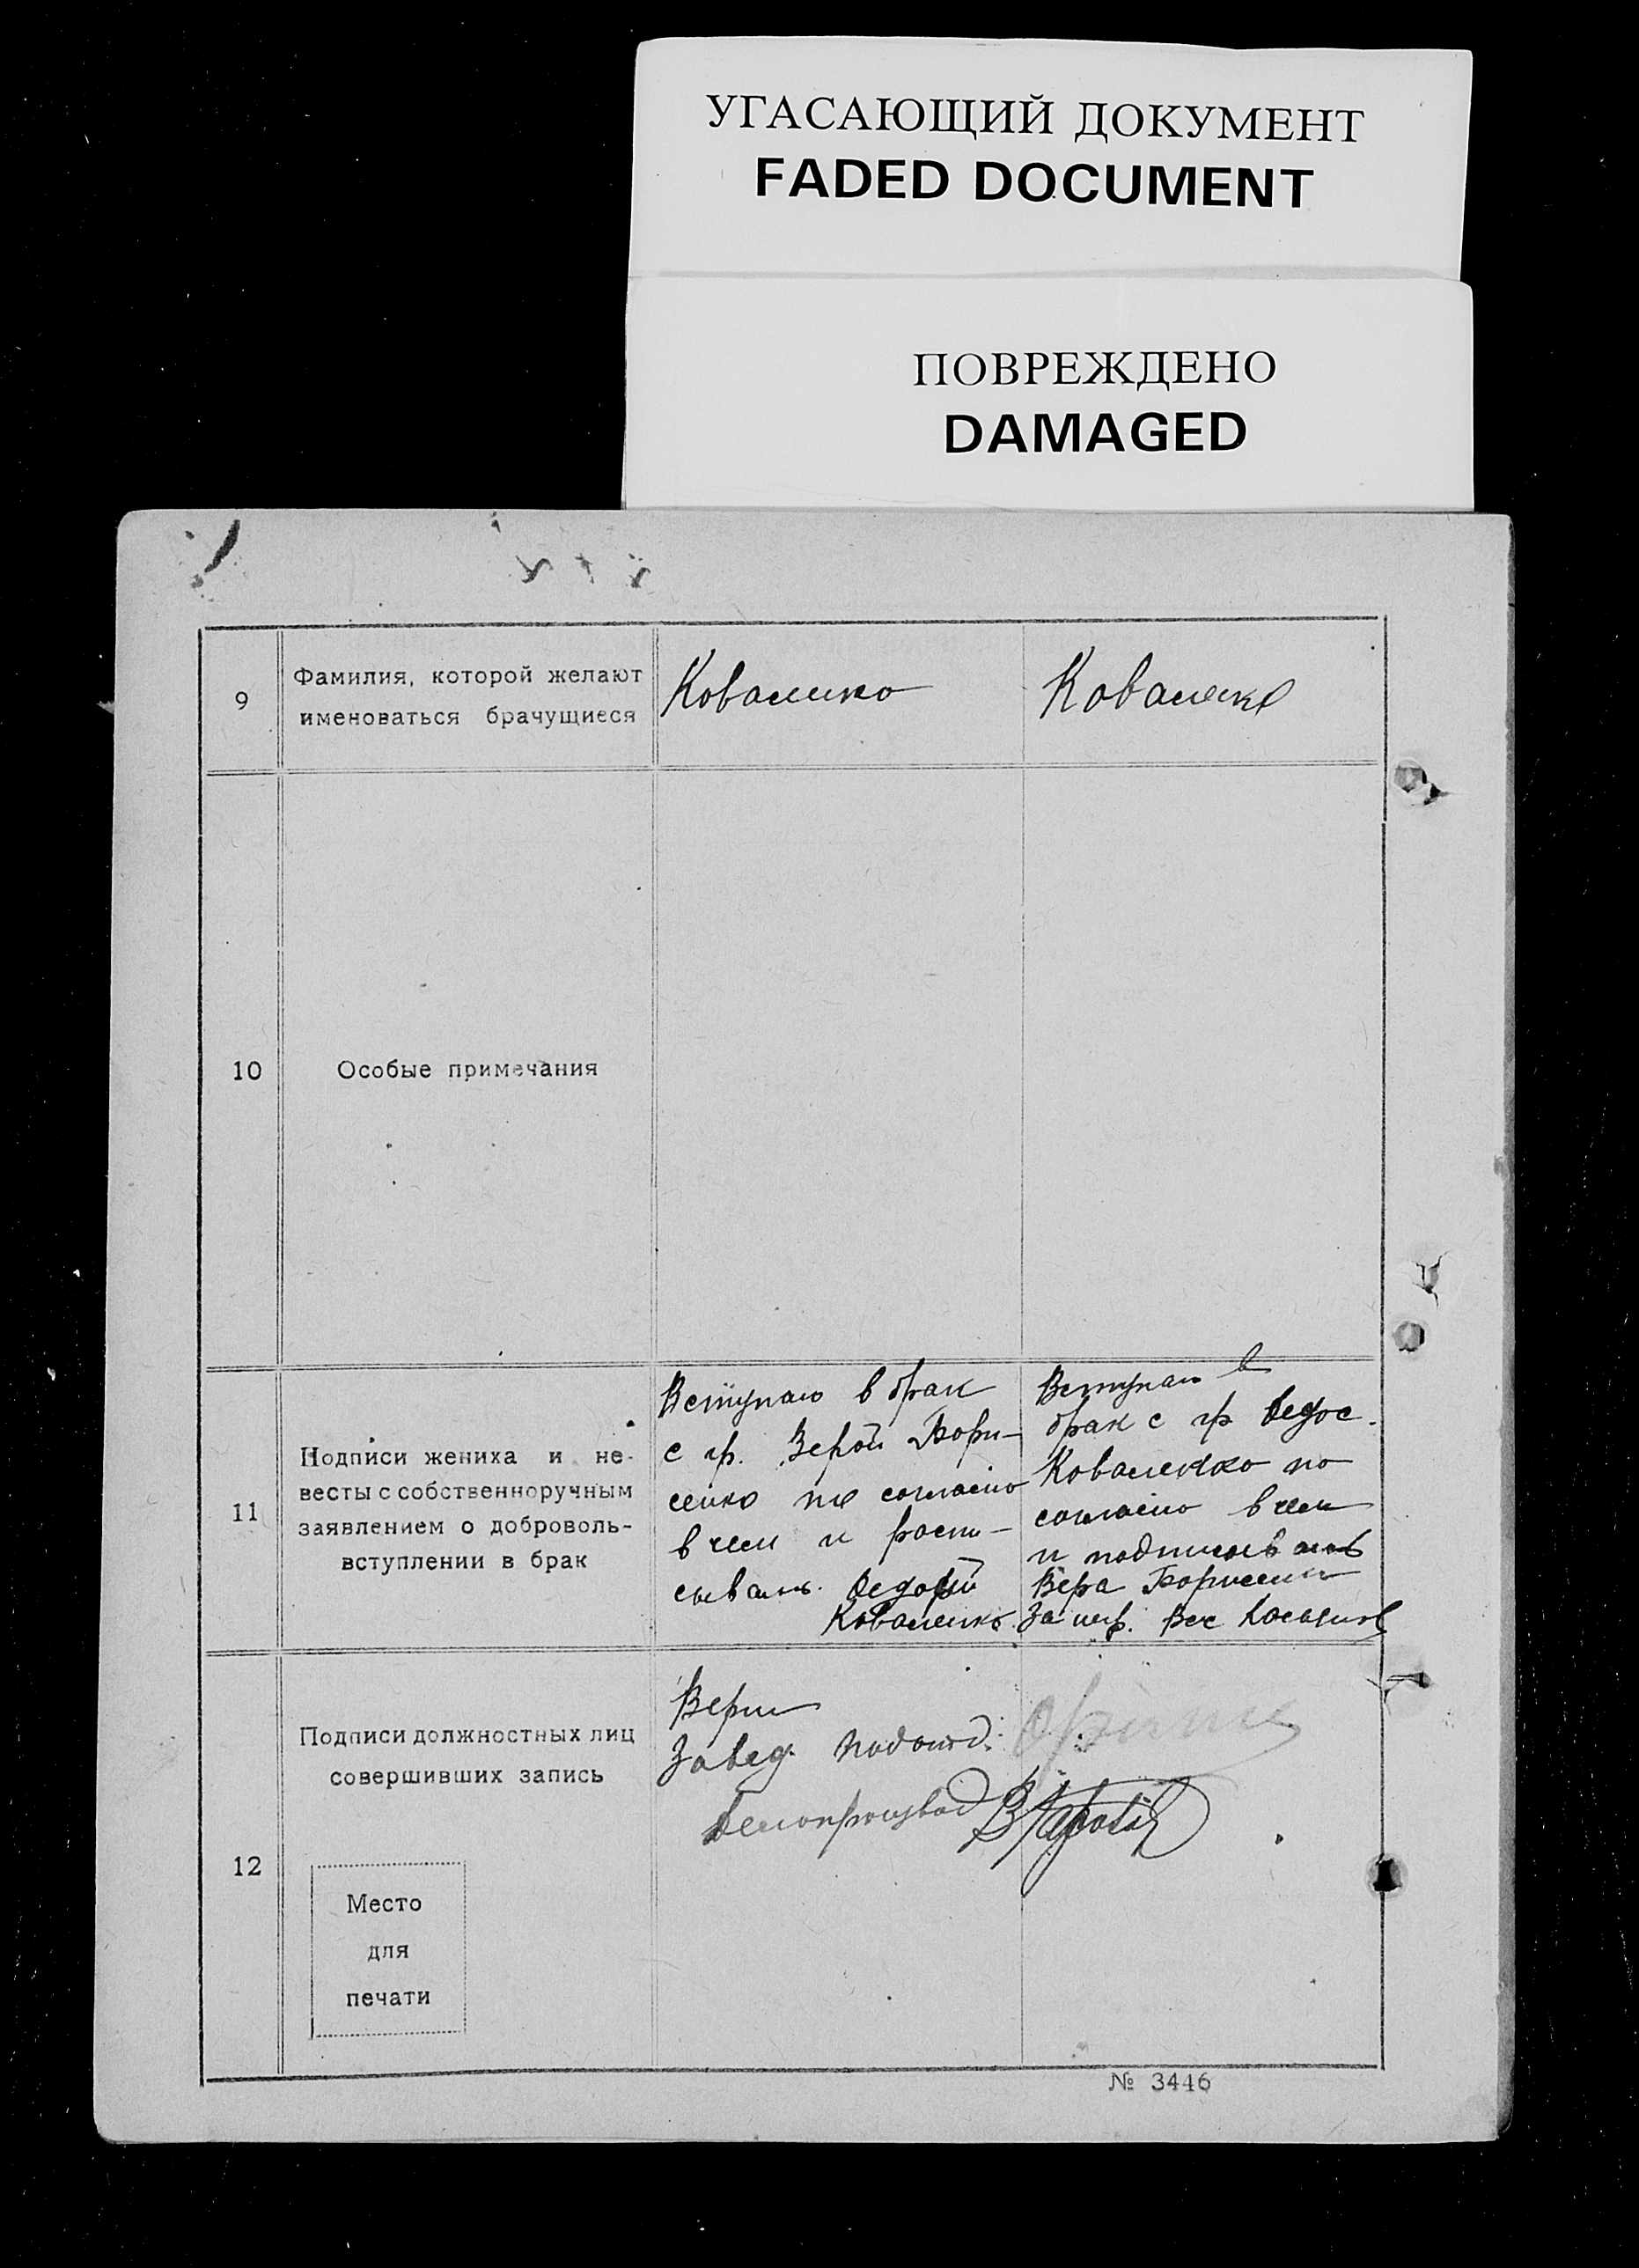 УГАСАЮЩИЙ ДОКУМЕНТ
FADED DOCUMENT
ПОВРЕЖДЕНО
DAMAGED
9
Фамилия, которой желают
именоваться брачущиеся
Коваленко
Коваленко
10
Особые примечания
11
Подписи жениха и не-
весты с собственноручным
заявлением о доброволь-
вступлении в брак
Вступаю в брак
с гр. Верой Бори-
сенко по
в чем и распи-
сываюсь
Коваленко
Вступаю в
брак с гр Федос.
Коваленко по
в чем
и подписываюсь
Вера Борисенко
За негр.
12
Подписи должностных лиц
совершивших запись
Место
для
печати
Верно
Завед. подотд.
Делопроизвод
№ 3446